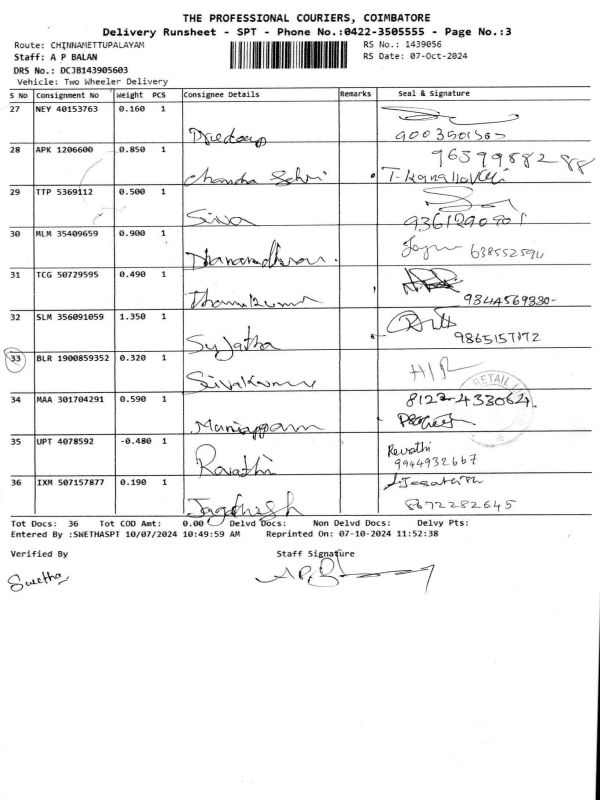 THE PROFESSIONAL COURIERS, COIMBATORE
Delivery Runsheet - SPT - Phone No.:0422-3505555 - Page No.:3
Route: CHINNAMETTUPALAYAM RS No.: 1439056
Staff: A P BALAN RS Date: 07-Oct-2024
DRS No.: DCJB143905603
Vehicle: Two Wheeler Delivery
S No Consignment No Weight PCS Consignee Details Remarks Seal & Signature
27 NEY 40153763 0.160 1
28 APK 1206600 0.850 1 Chandra
29 TTP 5369112 0.500 1 Siva
30 MLM 35409659 0.900 1
31 TCG 50729595 0.490 1 9344569330-
32 SLM 356091059 1.350 1 Sujatha
33 BLR 1900859352 0.320 1 Sivakumar H/R
RETAIL
34 MAA 301704291 0.590 1 8122-433064
35 UPT 4078592 -0.480 1 Revathi Revathi
9944932667
36 IXM 507157877 0.190 1 Jagdhish
8672282645
Tot Docs: 36 Tot COD Amt: 0.00 Delvd Docs: Non Delvd Docs: Delvy Pts:
Entered By :SWETHASPT 10/07/2024 10:49:59 AM Reprinted On: 07-10-2024 11:52:38
Verified By Staff Signature
Swetha